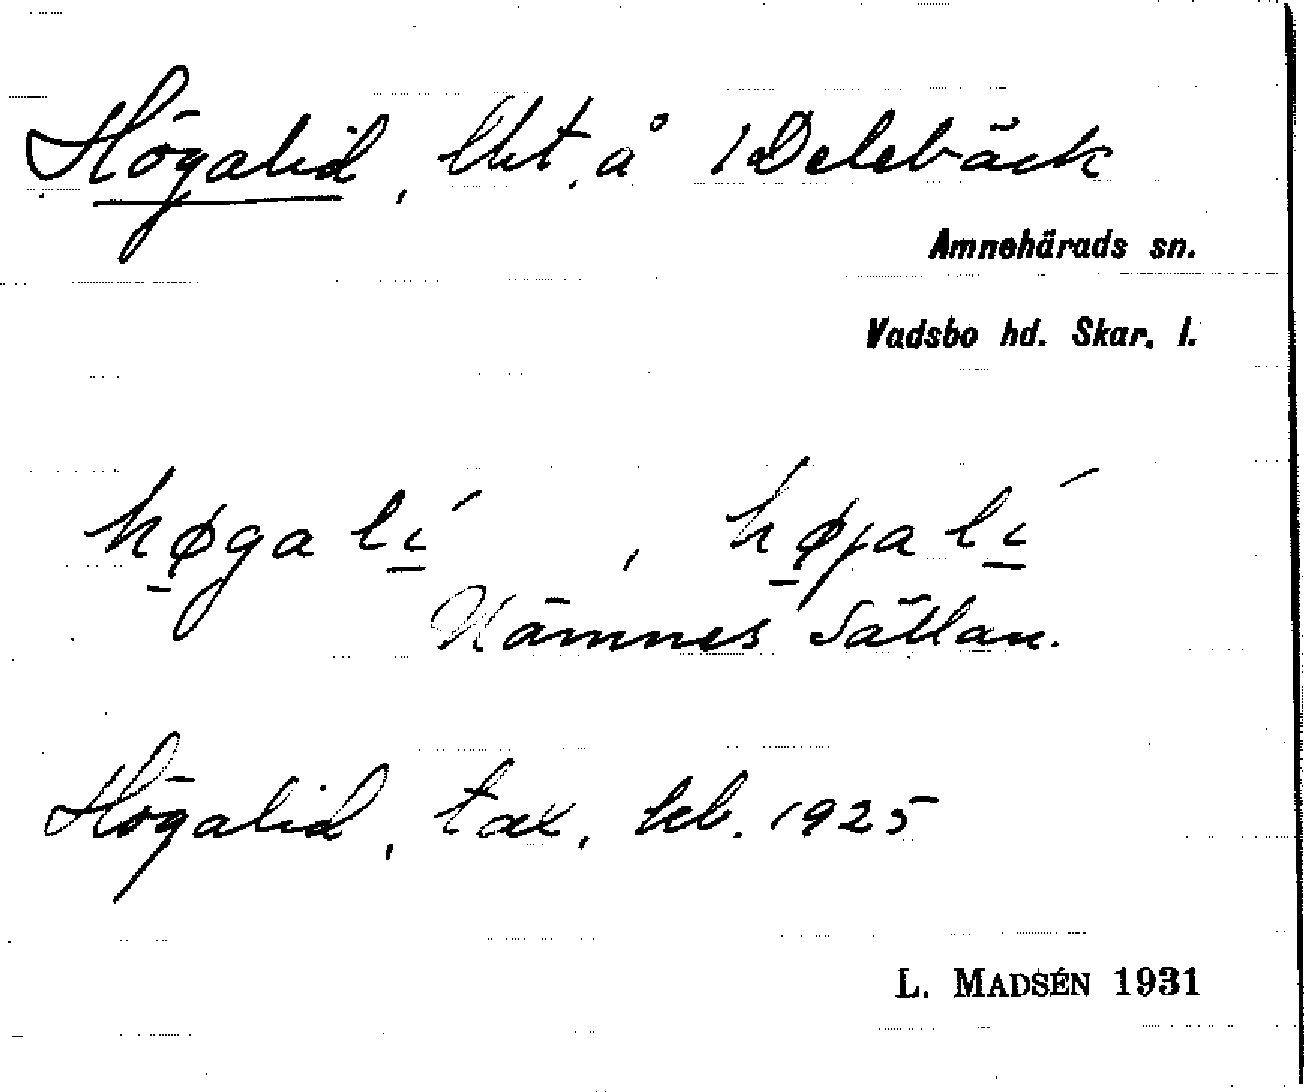 Högalid, lht. å 1 Delebäck
Amnehärads sn.
Vadsbo hd. Skar. l.
høgalí́, højalí́
Nämnes sällan.
Högalid, tax. 1925
L. MADSÉN 1931